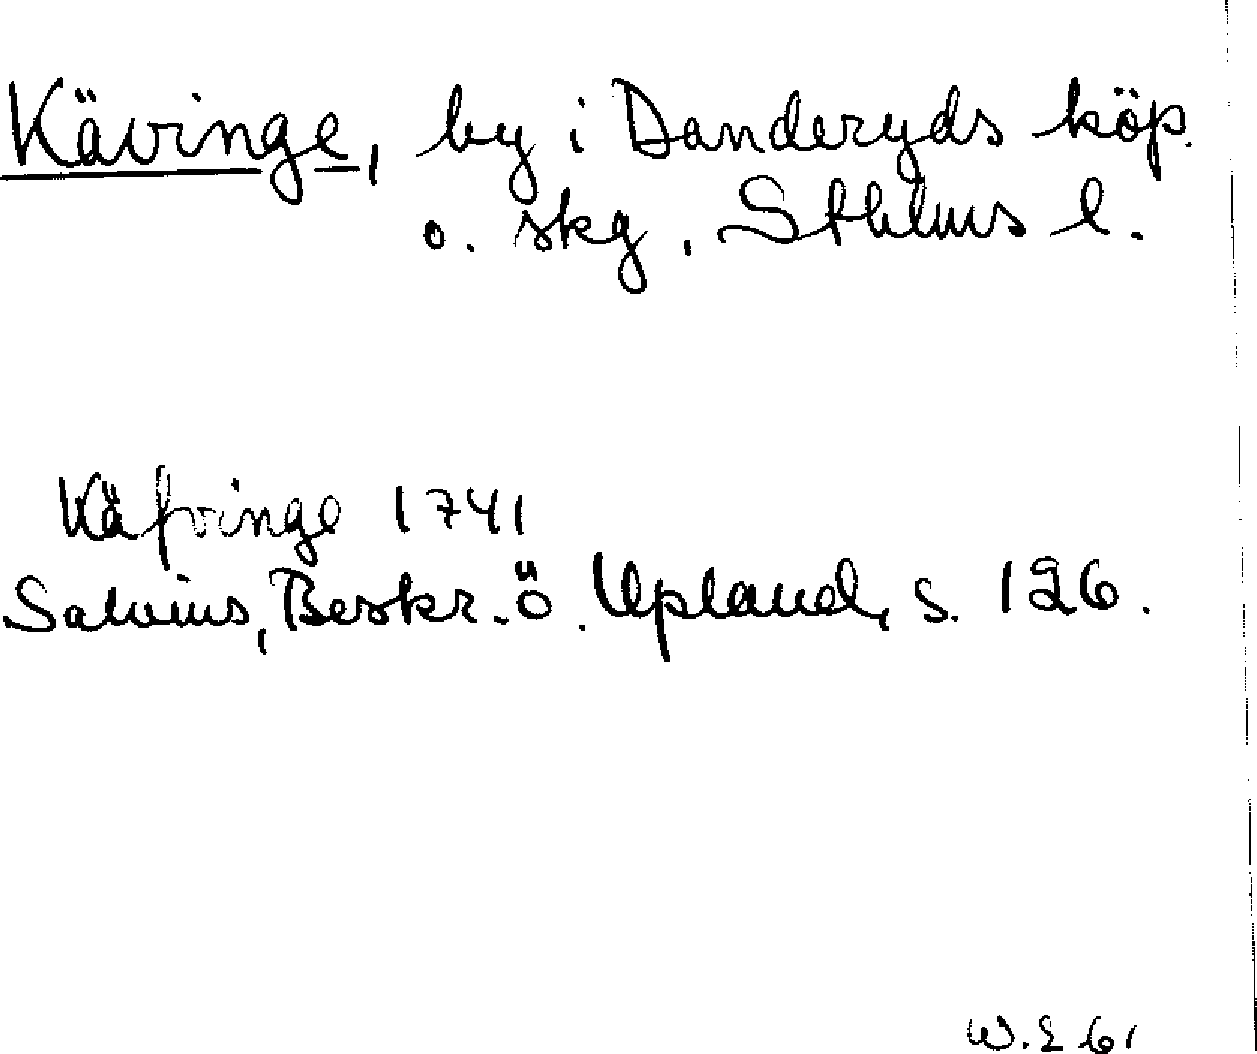 Kävinge, by i Danderyds köp.
o. skg, Sthlms l.
Käfvinge 1741
Salvius, Beskr. ö. Upland, s. 126.
W. L 61